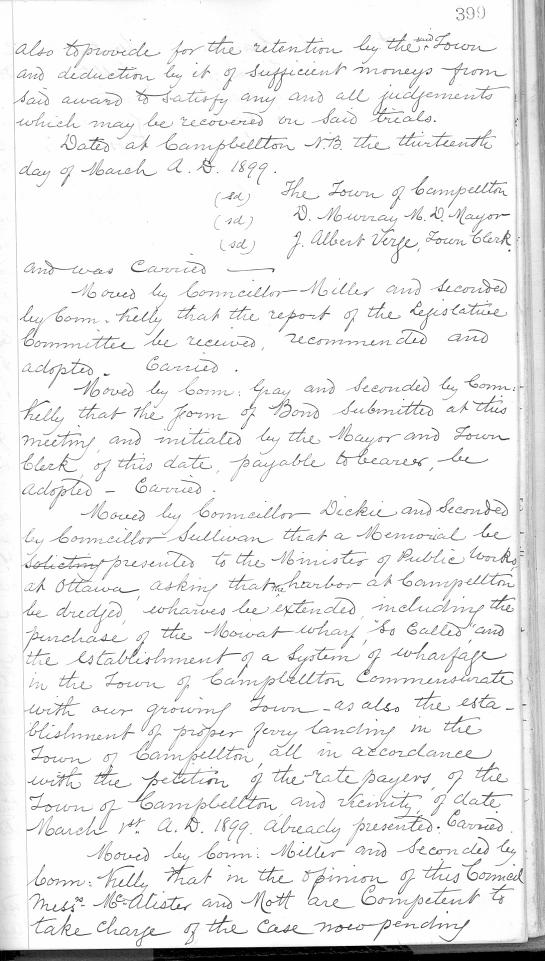 399
also to provide for the retention by the said Town
and deduction by it of sufficient moneys from
said award to satisfy any and all judgements
which may be recovered on said trials.
Dated at Campbellton N.B. the thirteenth
day of March A. D. 1899.
(sd) The Town of Campellton
(sd) D. Murray M. D. Mayor
(sd) J. Albert Verge, Town Clerk.
and was Carried —
Moved by Councillor Miller and seconded
by Coun. Kelly that the report of the Legislative
Committee be received, recommended and
adopted - Carried.
Moved by Coun: Gray and seconded by Coun:
Kelly that the form of Bond submitted at this
meeting, and initiated by the Mayor and Town
Clerk, of this date, payable to bearer, be
adopted - Carried.
Moved by Councillor Dickie and seconded
by Councillor Sullivan that a Memorial be
soliciting presented to the Minister of Public Works,
at Ottawa, asking that the harbor at Campellton
be dredged, wharves be extended, including the
purchase of the Mowat wharf, "So Called," and
the establishment of a System of wharfage
in the Town of Campbellton Commensurate
with our growing Town - as also the esta-
blishment of proper ferry landing in the
Town of Campellton, all in accordance
with the petition of the rate payers, of the
Town of Campbellton and vicinity, of date,
March 1st. A. D. 1899. already presented. Carried.
Moved by Coun: Miller and Seconded by
Coun: Kelly that in the opinion of this Council
Messrs. McAlister and Mott are Competent to
take charge of the case now pending